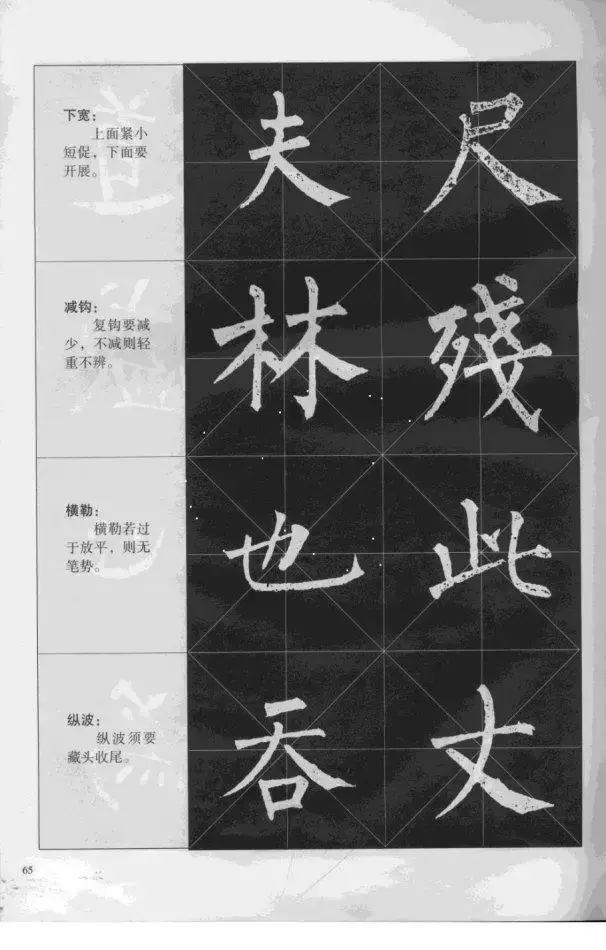 下宽：
上面紧小
短促，下面要
开展。
夫 尺
减钩：
复钩要减
少，不减则轻
重不辨。
林 残
横勒：
横勒若过
于放平，则无
笔势。
也 此
纵波：
纵波须要
藏头收尾。
吞 丈
65